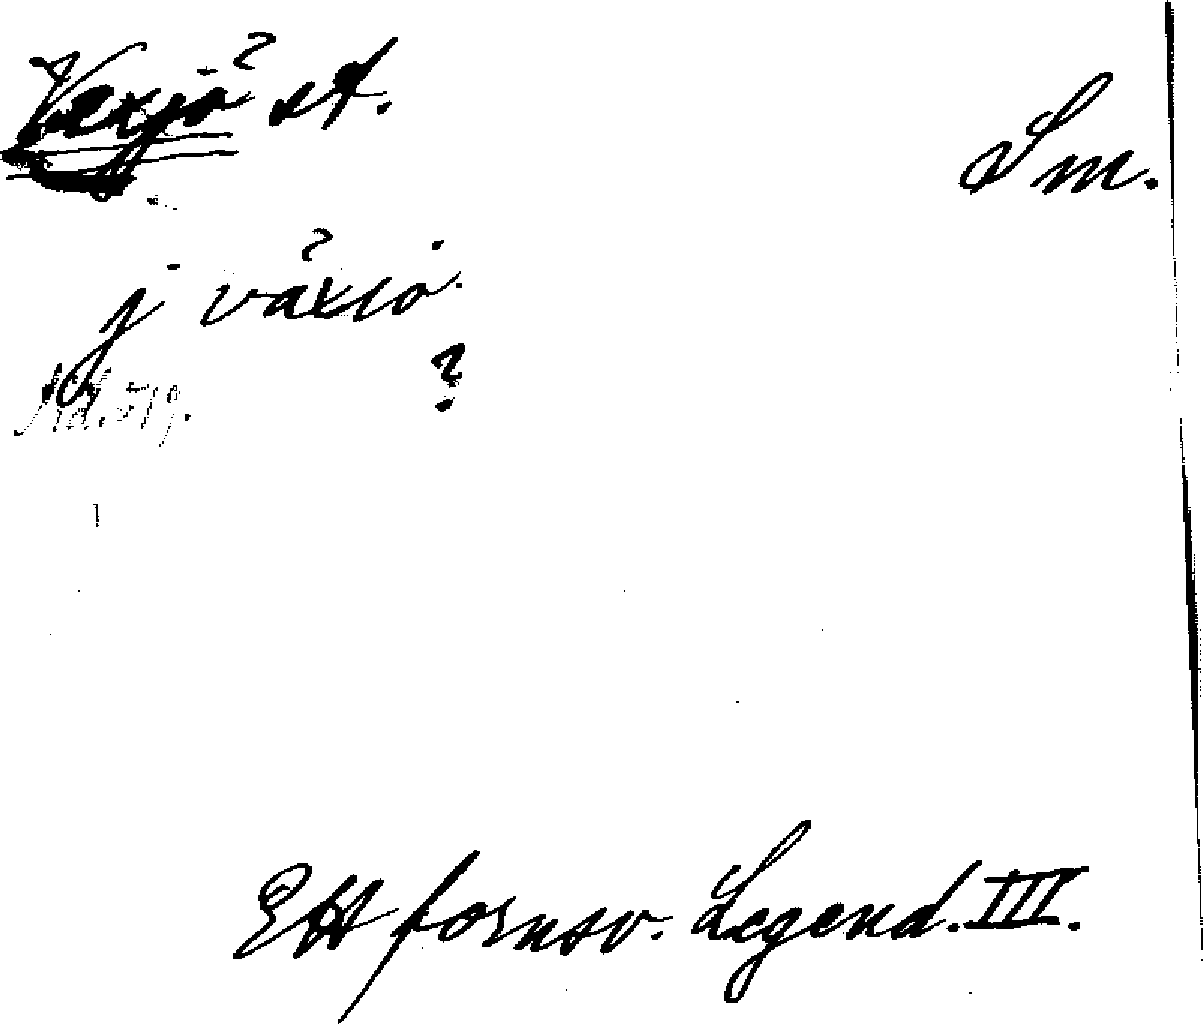 Växjö ? st.
Sm.
j växiö
?
Ett fornsv. Legend. III.